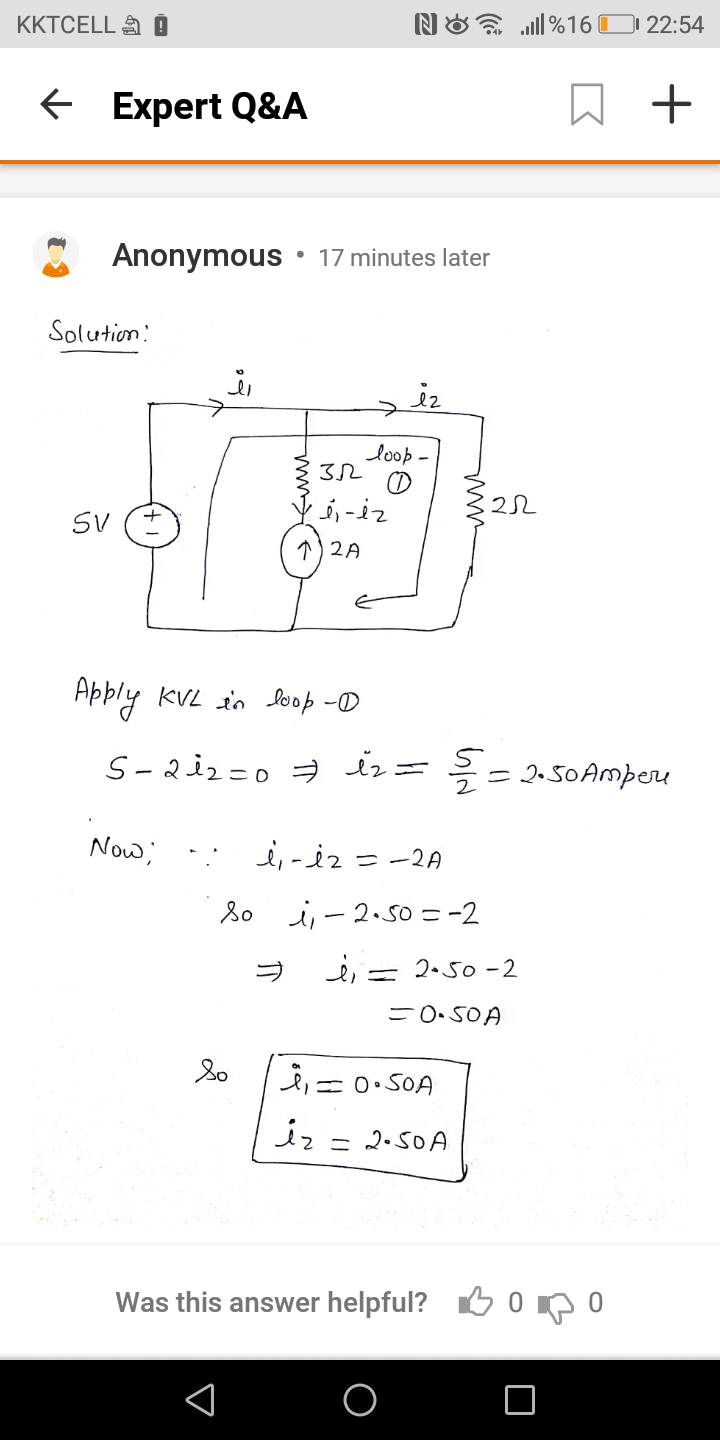 KKTCELL %16 22:54
Expert Q&A
Anonymous • 17 minutes later
Solution:
i₁
i₂
loop-
3Ω ①
i₁-i₂
5V + −
2Ω
↑ 2A
Apply KVL in loop-①
5-2i₂=0 ⇒ i₂ = 5/2 = 2.50Ampere
Now; ∵ i₁-i₂ = -2A
So i₁ - 2.50 = -2
⇒ i₁ = 2.50-2
= 0.50A
So i₁ = 0.50A
i₂ = 2.50A
Was this answer helpful? 0 0